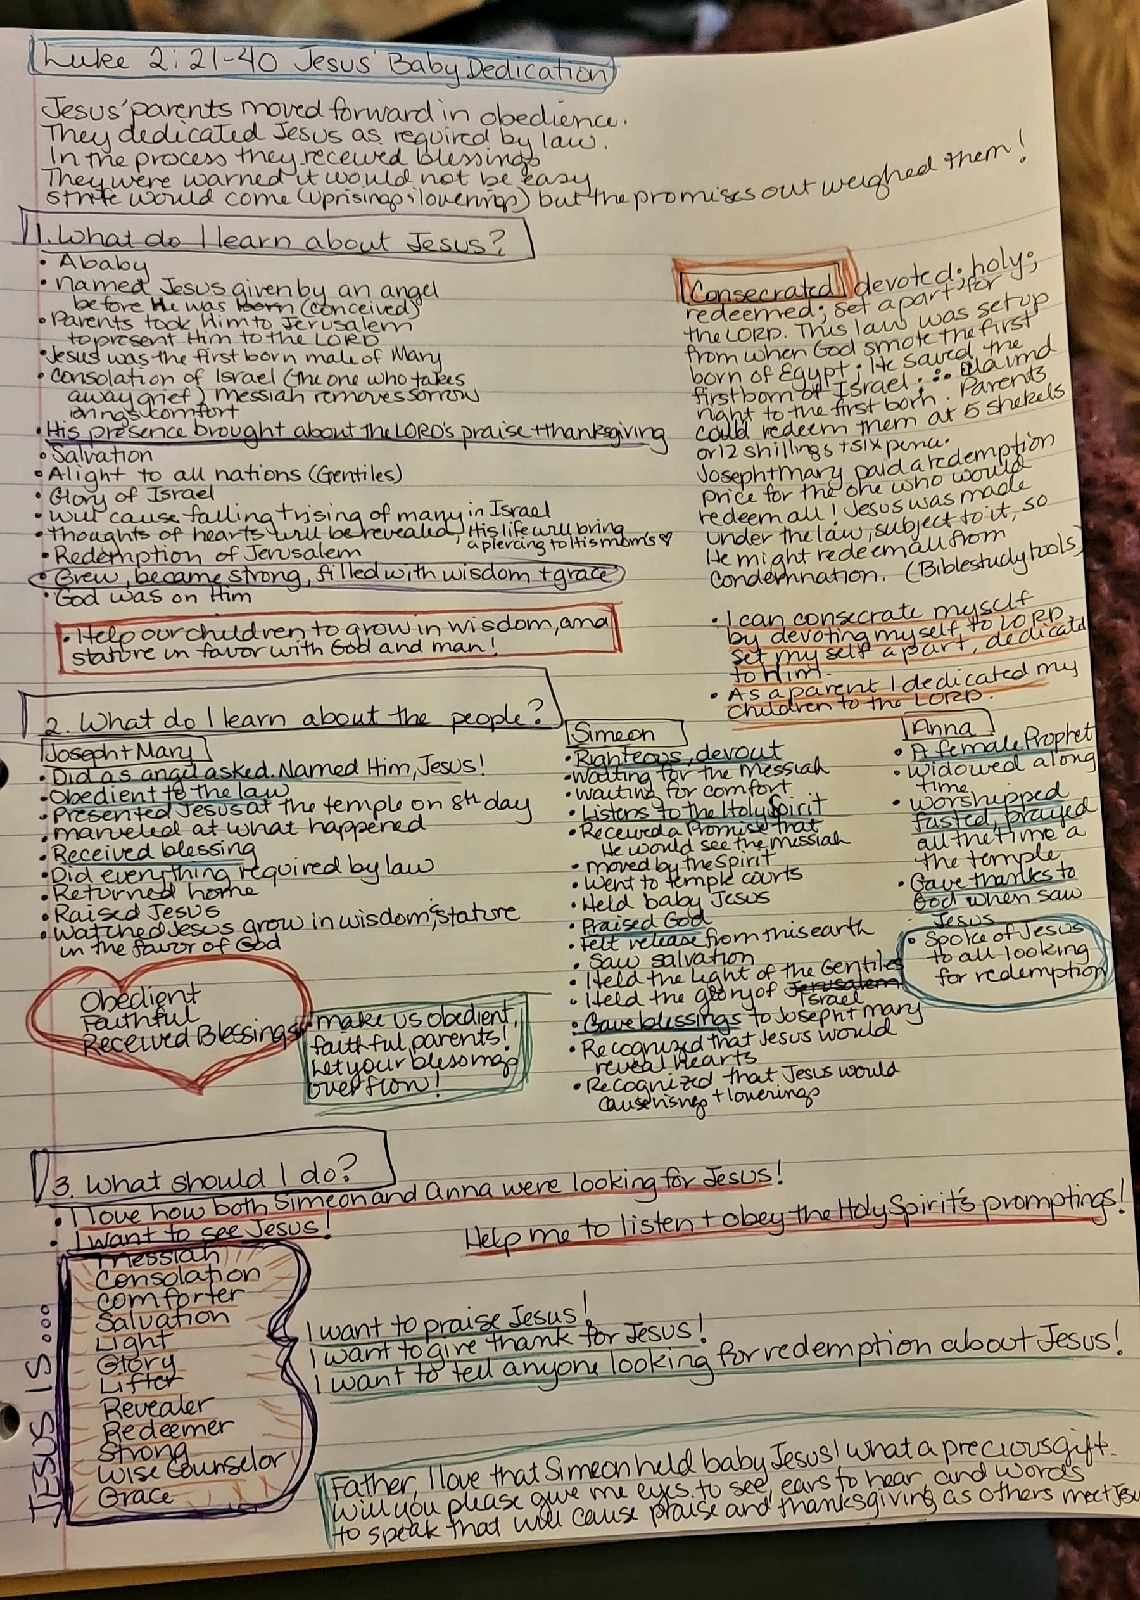 Luke 2:21-40 Jesus' Baby Dedication
Jesus' parents moved forward in obedience.
They dedicated Jesus as required by law.
In the process they received blessings
They were warned it would not be easy
strife would come (uprisings & lowerings) but the promises out weighed them!
1. What do I learn about Jesus?
• A baby
• Named Jesus given by an angel
before He was born (conceived)
• Parents took Him to Jerusalem
to present Him to the LORD
• Jesus was the first born male of Mary
• Consolation of Israel (the one who takes
away grief) messiah removes sorrow
brings comfort
• His presence brought about the LORD's praise + thanksgiving
• Salvation
• A light to all nations (Gentiles)
• Glory of Israel
• Will cause falling + rising of many in Israel
• Thoughts of hearts will be revealed, His life will bring
a piercing to His mom's ♡
• Redemption of Jerusalem
• Grew, became strong, filled with wisdom + grace
• God was on Him
• Help our children to grow in wisdom, and
stature in favor with God and man!
Consecrated devoted; holy;
redeemed; set apart; for
the LORD. This law was set up
from when God smote the first
born of Egypt; He saved the
firstborn of Israel; ∴ claimd
right to the first born. Parents
could redeem them at 5 shekels
or 12 shillings + six pence.
Joseph + Mary paid a redemption
price for the one who would
redeem all! Jesus was made
under the law, subject to it, so
He might redeem all from
condemnation. (Biblestudytools)
• I can consecrate myself
by devoting myself to LORD
set my self apart, dedicate
to Him.
• As a parent I dedicated my
children to the LORD.
2. What do I learn about the people?
Joseph + Mary
• Did as angel asked. Named Him, Jesus!
• Obedient to the law
• Presented Jesus at the temple on 8th day
• marveled at what happened
• Received blessing
• Did everything required by law
• Returned home
• Raised Jesus
• Watched Jesus grow in wisdom, stature
in the favor of God
Obedient
Faithful
Received Blessings
make us obedient,
faithful parents!
Let your blessings
overflow!
Simeon
• Righteous, devout
• waiting for the Messiah
• waiting for comfort
• Listens to the Holy Spirit
• Received a Promise that
He would see the Messiah
• moved by the Spirit
• Went to temple courts
• Held baby Jesus
• Praised God
• Felt release from this earth
• Saw salvation
• Held the Light of the Gentiles
• Held the glory of Jerusalem
Israel
• Gave blessings to Joseph + mary
• Recognized that Jesus would
reveal hearts
• Recognized that Jesus would
cause risings + lowerings
Anna
• A female Prophet
• Widowed a long
time
• Worshipped
fasted, prayed
all the time a
the temple
• Gave thanks to
God when saw
Jesus
• Spoke of Jesus
to all looking
for redemption
3. What should I do?
• I love how both Simeon and Anna were looking for Jesus!
• I want to see Jesus!
Help me to listen + obey the Holy Spirit's promptings!
JESUS IS...
Messiah
Consolation
Comforter
Salvation
Light
Glory
Lifter
Revealer
Redeemer
Strong
Wise Counselor
Grace
I want to praise Jesus!
I want to give thank for Jesus!
I want to tell anyone looking for redemption about Jesus!
Father, I love that Simeon held baby Jesus! What a precious gift.
Will you please give me eyes to see, ears to hear, and words
to speak that will cause praise and thanksgiving as others meet Jesu